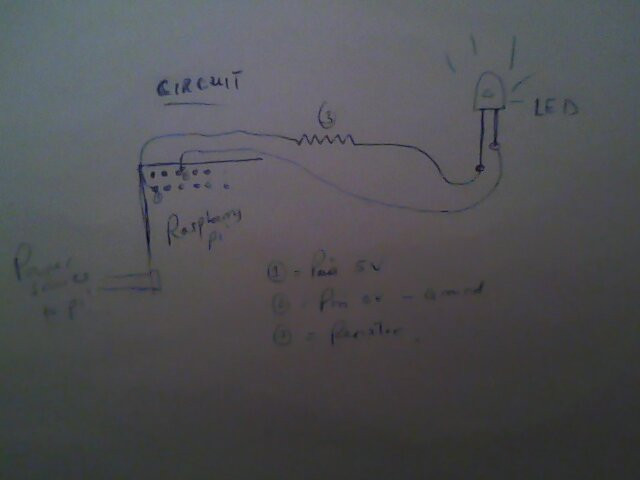 CIRCUIT
③
LED
Raspberry
pi
Power
① = Pin 5V
② = Pin 0V - Ground
③ = Resistor.